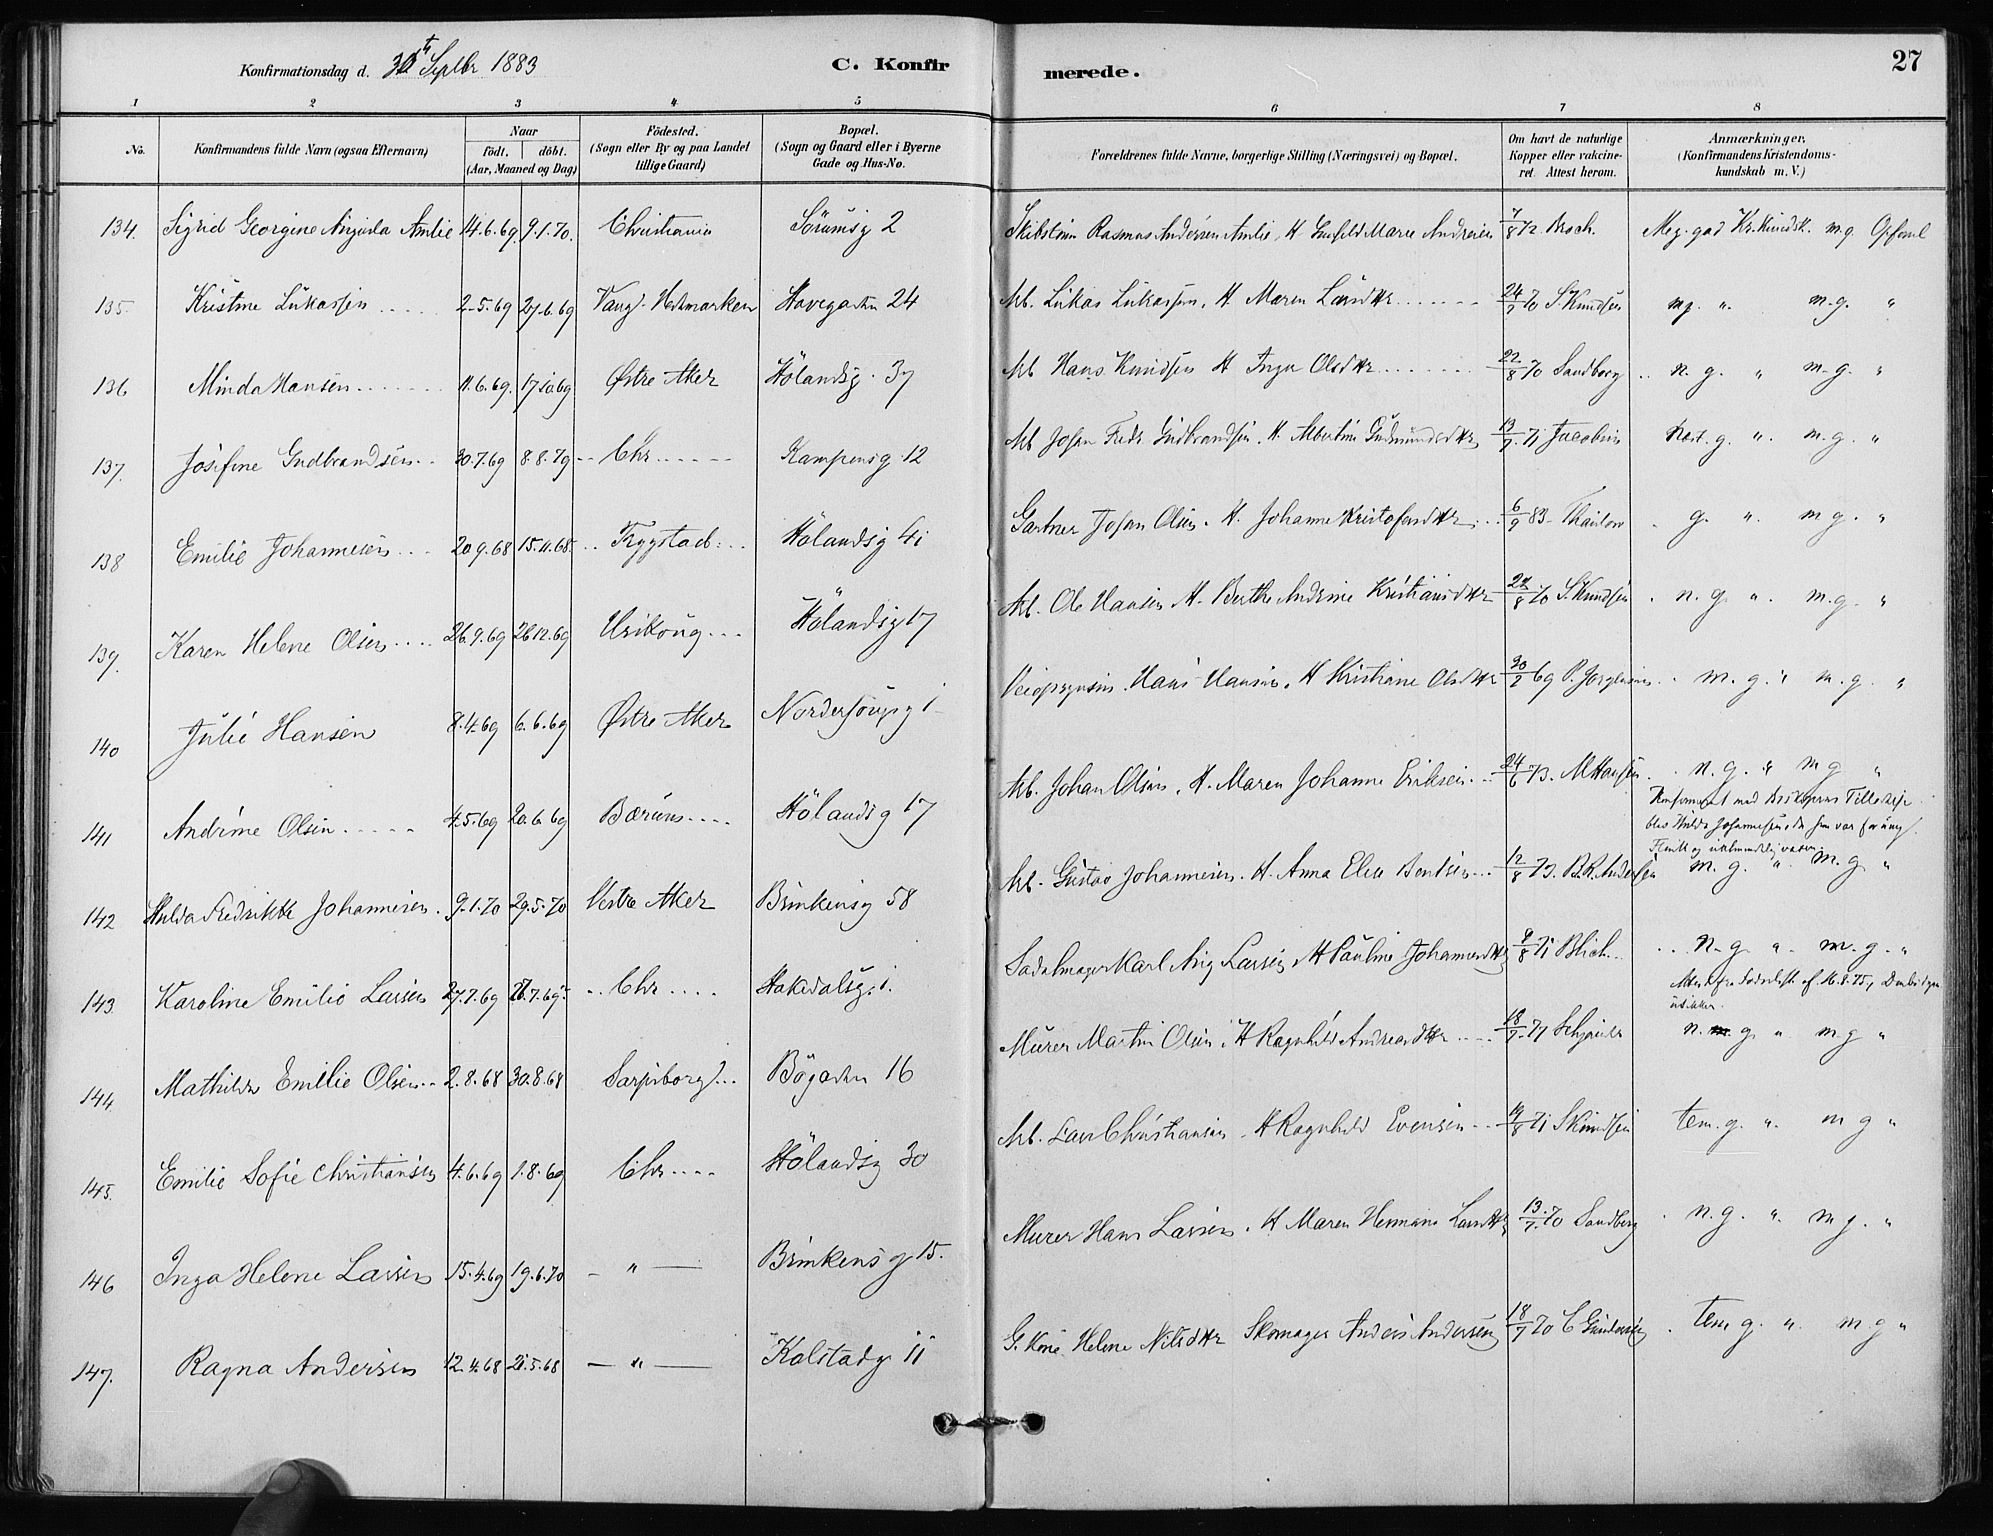 Konfirmationsdag d. 30t Septbr 1883 C. Konfirmerede. 27
1 2 3 4 5 6 7 8
No. Konfirmandens fulde Navn (ogsaa Efternavn) Naar födt. döbt. (Aar, Maaned og Dag) Födested. (Sogn eller By og paa Landet tillige Gaard) Bopæl. (Sogn og Gaard eller i Byerne Gade og Hus-No. Forældrenes fulde Navne, borgerlige Stilling (Næringsvei) og Bopæl. Om havt de naturlige Kopper eller vakcineret. Attest herom. Anmærkninger. (Konfirmandens Kristendomskundskab m. V.)
134. Sigrid Georgine Amlie 14.6.69. 9.1.70. Christiania Sörumsg 2 Rasmus Andersen Amlie, H Marie Andersen 7/8 72 Broch. Meg. god Kr. Kundsk. m.g. Opförsel
135. Kristine Lukassen 2.5.69 27.6.69 Vang. Hedmarken Havegaden 24 Arb. Lukas Lukassen, H. Maren Larsdttr 24/7 70 S Knudsen mg. " m.g. "
136 Minda Hansen 11.6.69. 17.10.69 Østre Aker Hölandsg. 37 Arb Hans Knudsen H Inga Olsdttr 22/8 70 Sandberg n. g. " m.g. "
137. Josefine Gudbrandsen 30.7.69 8.8.79 Chr. Kampensg 12 Arb Johan Fredr. Gudbrandsen, H. Albertine Gudmundsdttr 13/7 71 Jacobsen næst. g. " m.g. "
138 Emilie Johannesen 20.9.68 15.11.68. Trygstad Hölandsg 41 Gartner Johan Olsen. H. Johanne Kristofersdttr 6/9 83 Thaulow g. " m g. "
139. Karen Helene Olsen 26.9.69 26.12.69 Hölandsg 17 Arb. Ole Hansen H. Berthe Andrine Kristiansdttr 22/8 70 S. Knudsen n. g. " m.g. "
140 Julie Hansen 8.4.69 6.6.69 Østre Aker 1 Hans Hansen, H Kristiane Olsdttr 69 m.g. " m.g. "
141 Andrine Olsen 4.5.69 20.6.69 Bærum Hölandsg 17 Arb. Johan Olsen, H. Maren Johanne Eriksen 24/6 73. M Hansen n.g. " m g "
Konfirmeret med Biskopens Tilladelse
blev Hilda Johannesen, da hun var for ung.
142 Hulda Fredrikke Johannesen. 9.1.70 29.5.70 Vestre Aker Brinkensg 58 Arb. Gustav Johannesen. H. Anna Elise Bentsen 12/8 73. B.R. Andersen m.g. " m.g. "
143. Karoline Emilie Larsen 27.7.69 Chr. Hakedalsg. 1. Sadelmager Karl Aug Larsen, H Pauline Johannesdttr 9/8 71 Blich n.g. " m.g. "
144. Mathilde Emilie Olsen 2.8.68 30.8.68 Sarpsborg Bögaden 16 Murer Martin Olsen, H Ragnhild Andreasdttr 18/7 71 n. g " m g "
145. Emilie Sofie Christiansen 4.6.69 1.8.69 Chr. Hölandsg 30 Arb. Lars Christiansen H Ragnhild Evensen 19/8 71 S Knudsen tem. g. " m g "
146 Inga Helene Larsen 15.4.69 19.6.70 — " — Brinkensg 15. Murer Hans Larsen. H Maren Hermana Larsdttr 13/7 70 Sandberg n.g. " m g. "
147. Ragna Andersen 12.4.68 21.5.68 — " — Kalstadg. 11 G. Kone Helene Nilsdttr Skomager Anders Andersen 18/7 70 C Gundersen tem g. " m.g "